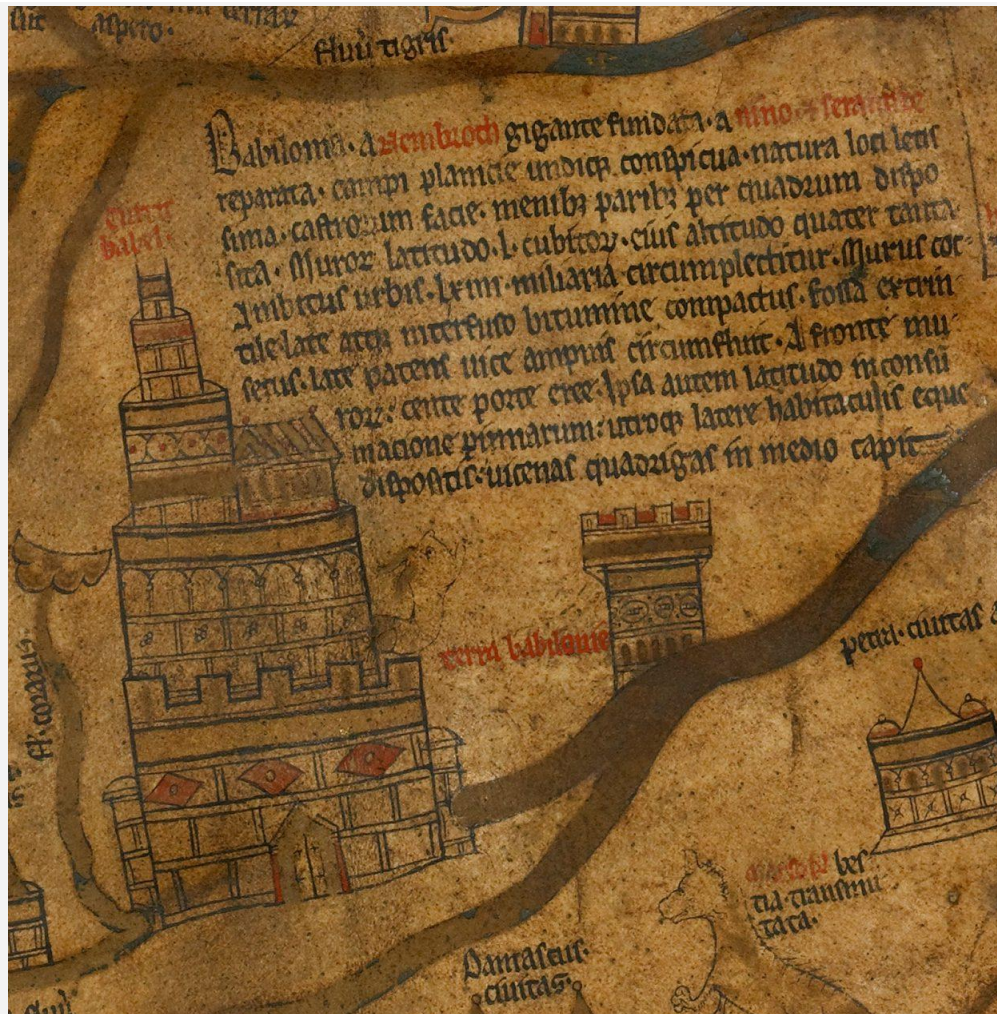 aspero·
fluui tigris
Babilonia· a Nembroth gigante fundata· a nino·
reparata· campi planicie undiqꝫ conspicua· natura loci letis
sima· castrorum facie· menibꝫ paribꝫ per quadrum dispo
sita· Muroꝝ latitudo·l·cubitoꝝ· eius altitudo quater tanta·
Ambitus urbis·lxiiii·miliaria circumplectitur·Murus coc
tile late atqꝫ interfuso bitumine compactus· fossa extrin
secus·late patens uice ampnis circumfluit·A fronte mu
roꝝ: cente porte eree·Ipsa autem latitudo in consū
macione pinnarum: utroqꝫ latere habitaculis eque
dispositis·uicenas quadrigas in medio capit
turris
babel·
terra babilonie
petra·ciuitas
bes
tia·transmu
tata·
Damascus·
ciuitas·